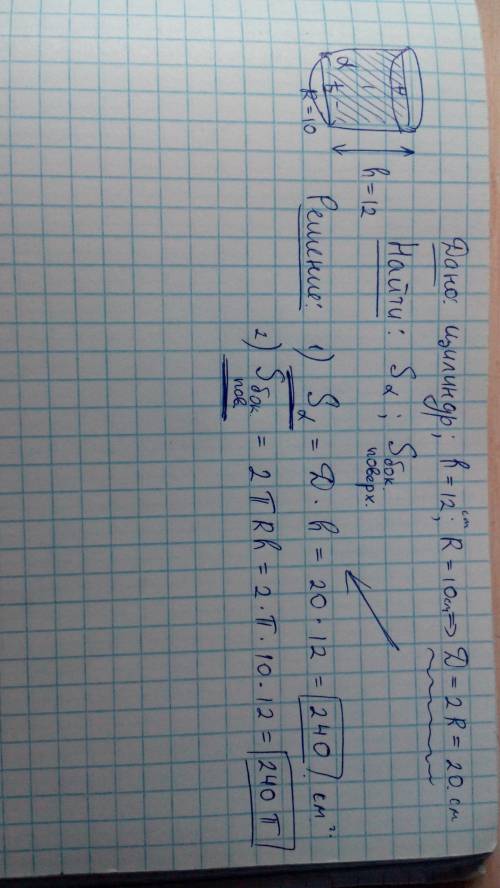 Дано: цилиндр; h = 12 см; R = 10 см => D = 2R = 20 см
Найти: Sα; Sбок. поверх.
h = 12
R = 10
α
Решение: 1) Sα = D · h = 20 · 12 = 240 см².
2) Sбок пов = 2πRh = 2·π·10·12 = 240π